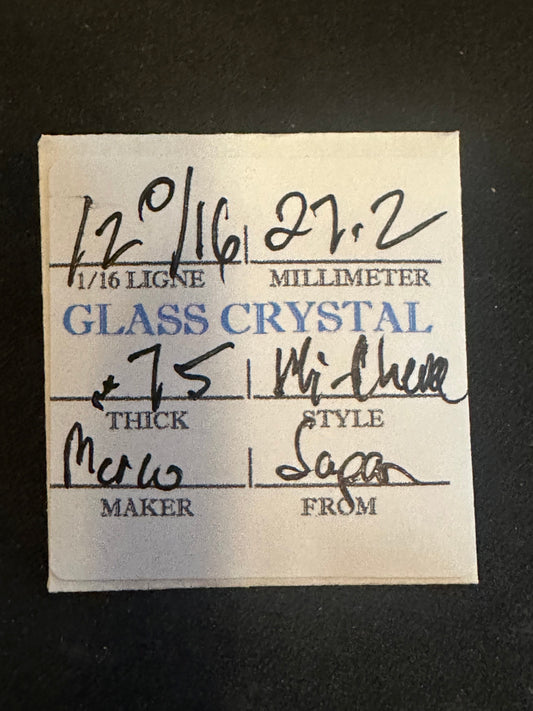 12 0/16 27.2
1/16 LIGNE MILLIMETER
GLASS CRYSTAL
.75 Mi-Cheve
THICK STYLE
Marco Japan
MAKER FROM